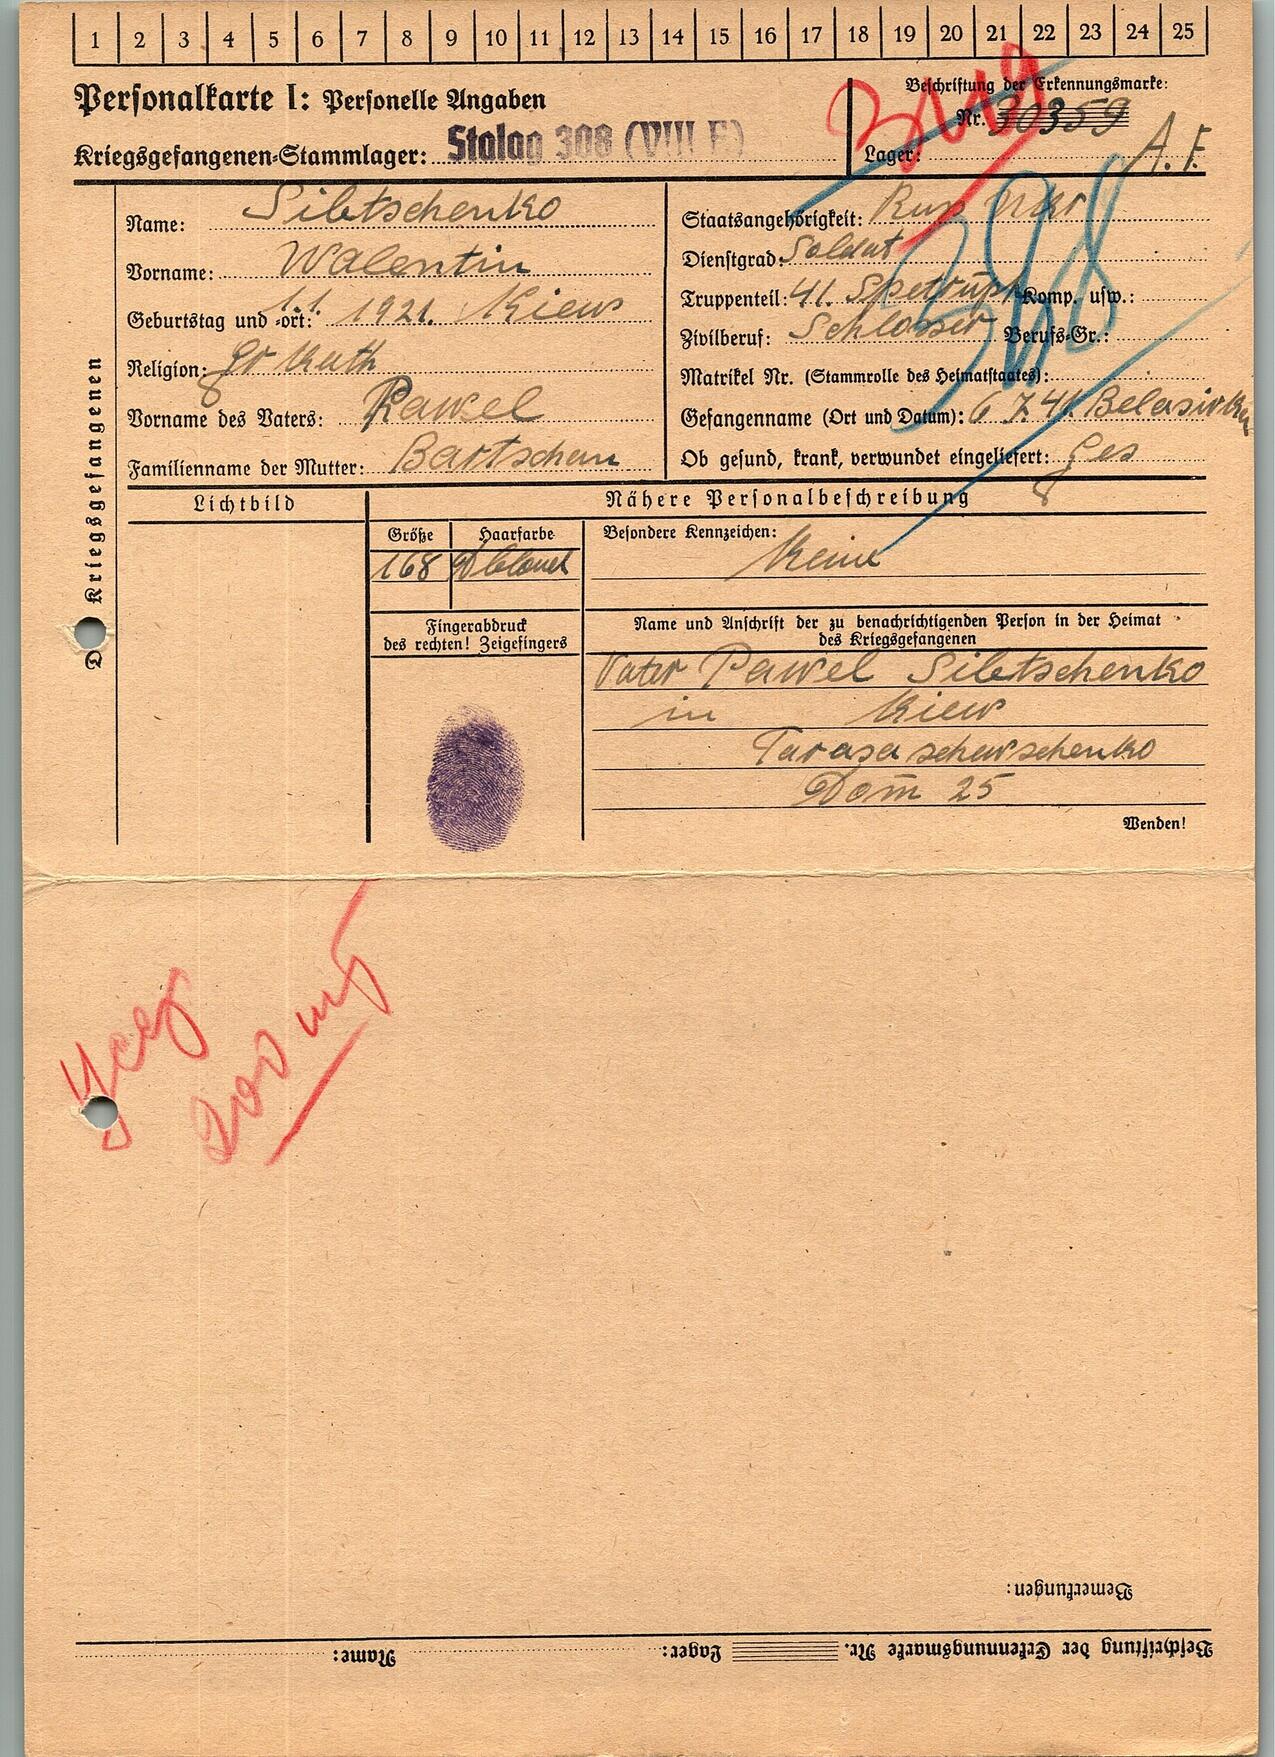 1 2 3 4 5 6 7 8 9 10 11 12 13 14 15 16 17 18 19 20 21 22 23 24 25
Personalkarte I: Personelle Angaben
Kriegsgefangenen-Stammlager: Stalag 308 (VIII E)
Beschriftung der Erkennungsmarke:
Nr. 30359
Lager: A.F.
368
Des Kriegsgefangenen
Name: Sibtschenko
Vorname: Walentin
Geburtstag und -ort: 1.1. 1921. Kiew
Religion: gr Kath
Vorname des Vaters: Pawel
Familienname der Mutter: Bartschen
Staatsangehörigkeit: Russ Ukr
Dienstgrad: Soldat
Truppenteil: 41. Komp. usw.:
Zivilberuf: Schlosser Berufs-Gr.:
Matrikel Nr. (Stammrolle des Heimatstaates):
Gefangennahme (Ort und Datum): 6.7.41.
Ob gesund, krank, verwundet eingeliefert: Ges
Lichtbild
Nähere Personalbeschreibung
Größe Haarfarbe
168 D blond
Besondere Kennzeichen:
Keine
Fingerabdruck
des rechten! Zeigefingers
Name und Anschrift der zu benachrichtigenden Person in der Heimat
des Kriegsgefangenen
Vater Pawel Sibtschenko
in Kiew
Tarasa schewschenko
Dom 25
Wenden!
Bemerkungen:
Beschriftung der Erkennungsmarke Nr. Lager: Name: